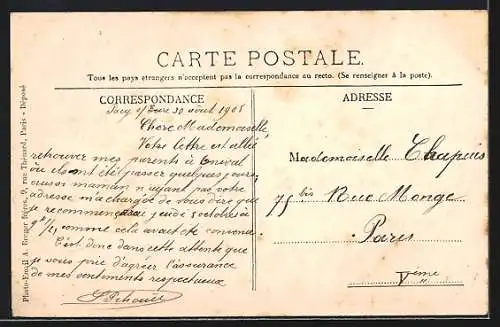 CARTE POSTALE.
Tous les pays étrangers n'acceptent pas la correspondance au recto. (Se renseigner à la poste).
CORRESPONDANCE
s/Eure 30 août 1905
Chère Mademoiselle
Votre lettre est allée
retrouver mes parents à
où ils ont été passer quelques jours
aussi maman n'ayant pas votre
adresse m'a chargée de vous dire que
je recommencerai jeudi 5 octobre à
comme cela avait été convenu.
C'est donc dans cette attente que
je vous prie d'agréer l'assurance
de mes sentiments respectueux
ADRESSE
Mademoiselle Chapuis
75 bis Rue Monge
Paris
Vème
Photo-Email A. Breger frères, 9, rue Thénard, Paris - Déposé